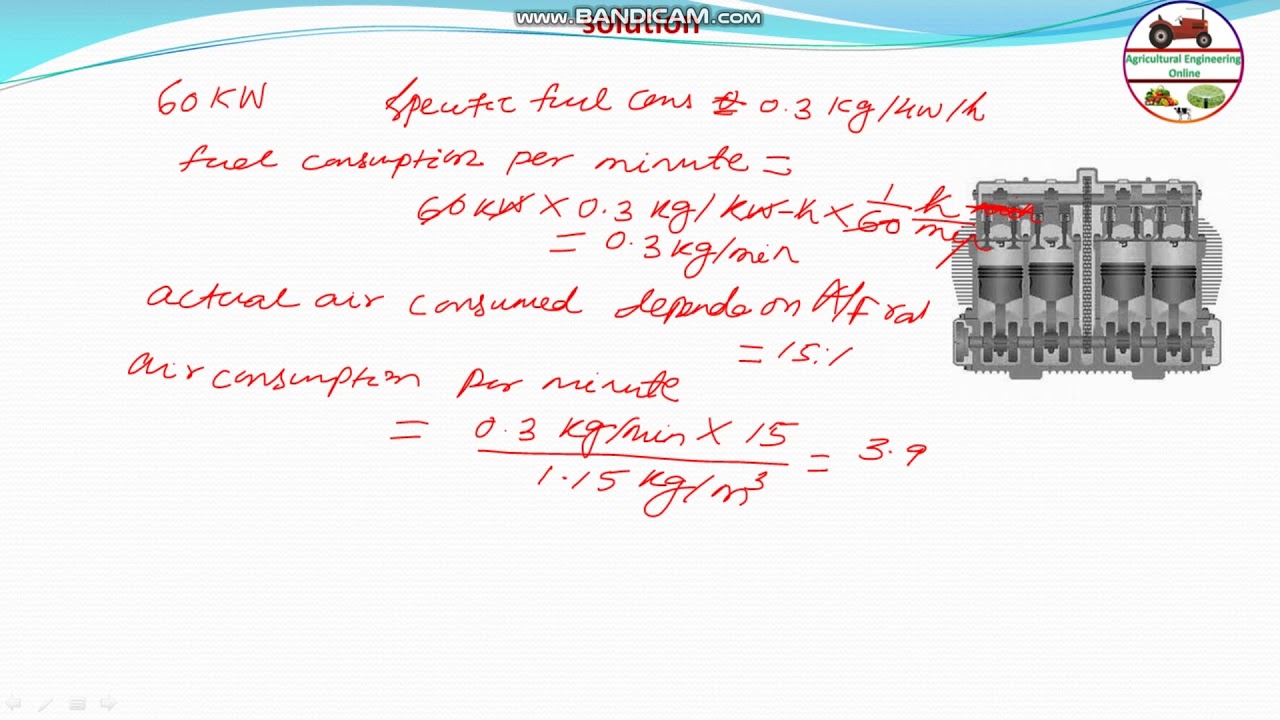 www.BANDICAM.com
solution
Agricultural Engineering
Online
60 KW Specific fuel cons = 0.3 kg/kw/h
fuel consumption per minute =
60 kw × 0.3 kg/kw-h × 1/60 h/min
= 0.3 kg/min
actual air consumed depends on A/F rat
= 15:1
air consumption per minute
= 0.3 kg/min × 15 / 1.15 kg/m³ = 3.9